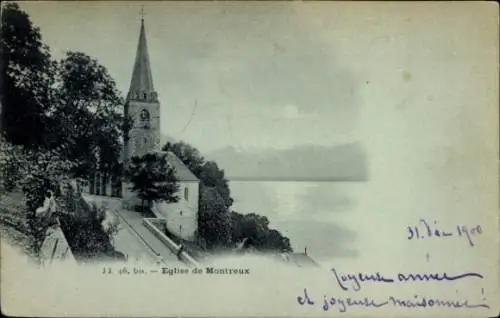 31 Déc 1900
Joyeuse année
et joyeuse maisonnée
JJ. 46, bis. – Eglise de Montreux